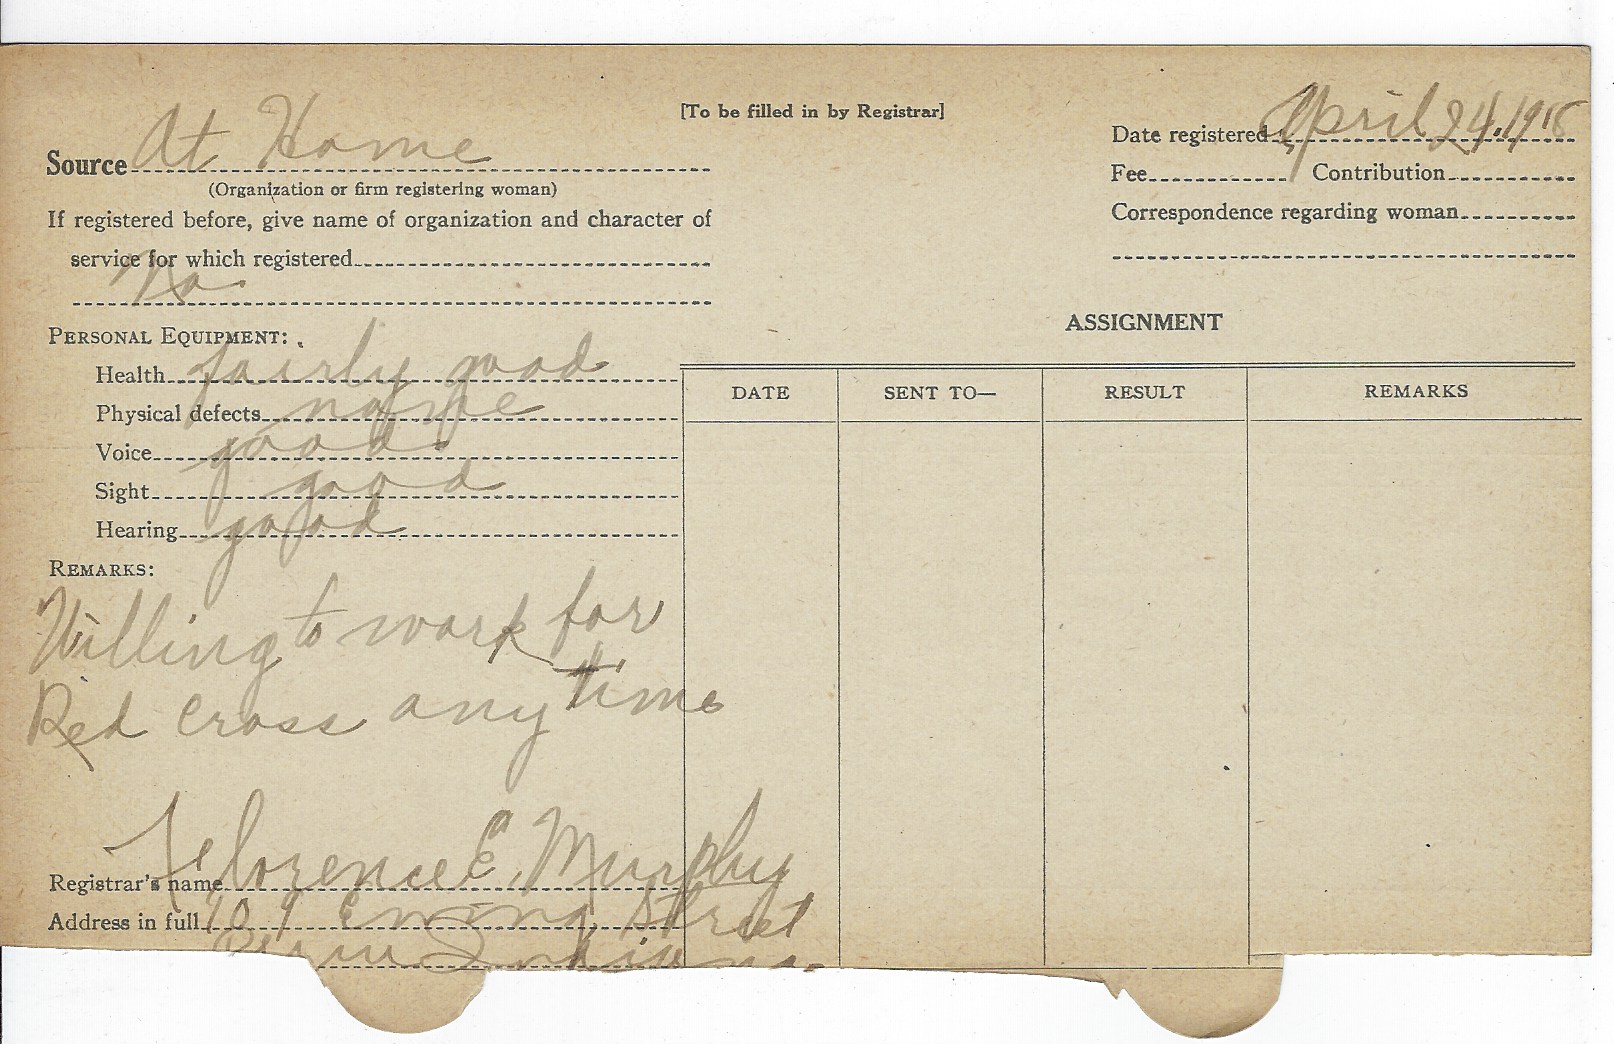 [To be filled in by Registrar]
Source At Home
(Organization or firm registering woman)
If registered before, give name of organization and character of
service for which registered
No
Date registered April 24, 1918
Fee Contribution
Correspondence regarding woman
PERSONAL EQUIPMENT:
Health fairly good
Physical defects none
Voice good
Sight good
Hearing good
REMARKS:
Willing to work for
Red Cross any time
ASSIGNMENT
DATE SENT TO— RESULT REMARKS
Registrar's name Florence E. Murphy
Address in full 709 Ewing Street
Peru Indiana